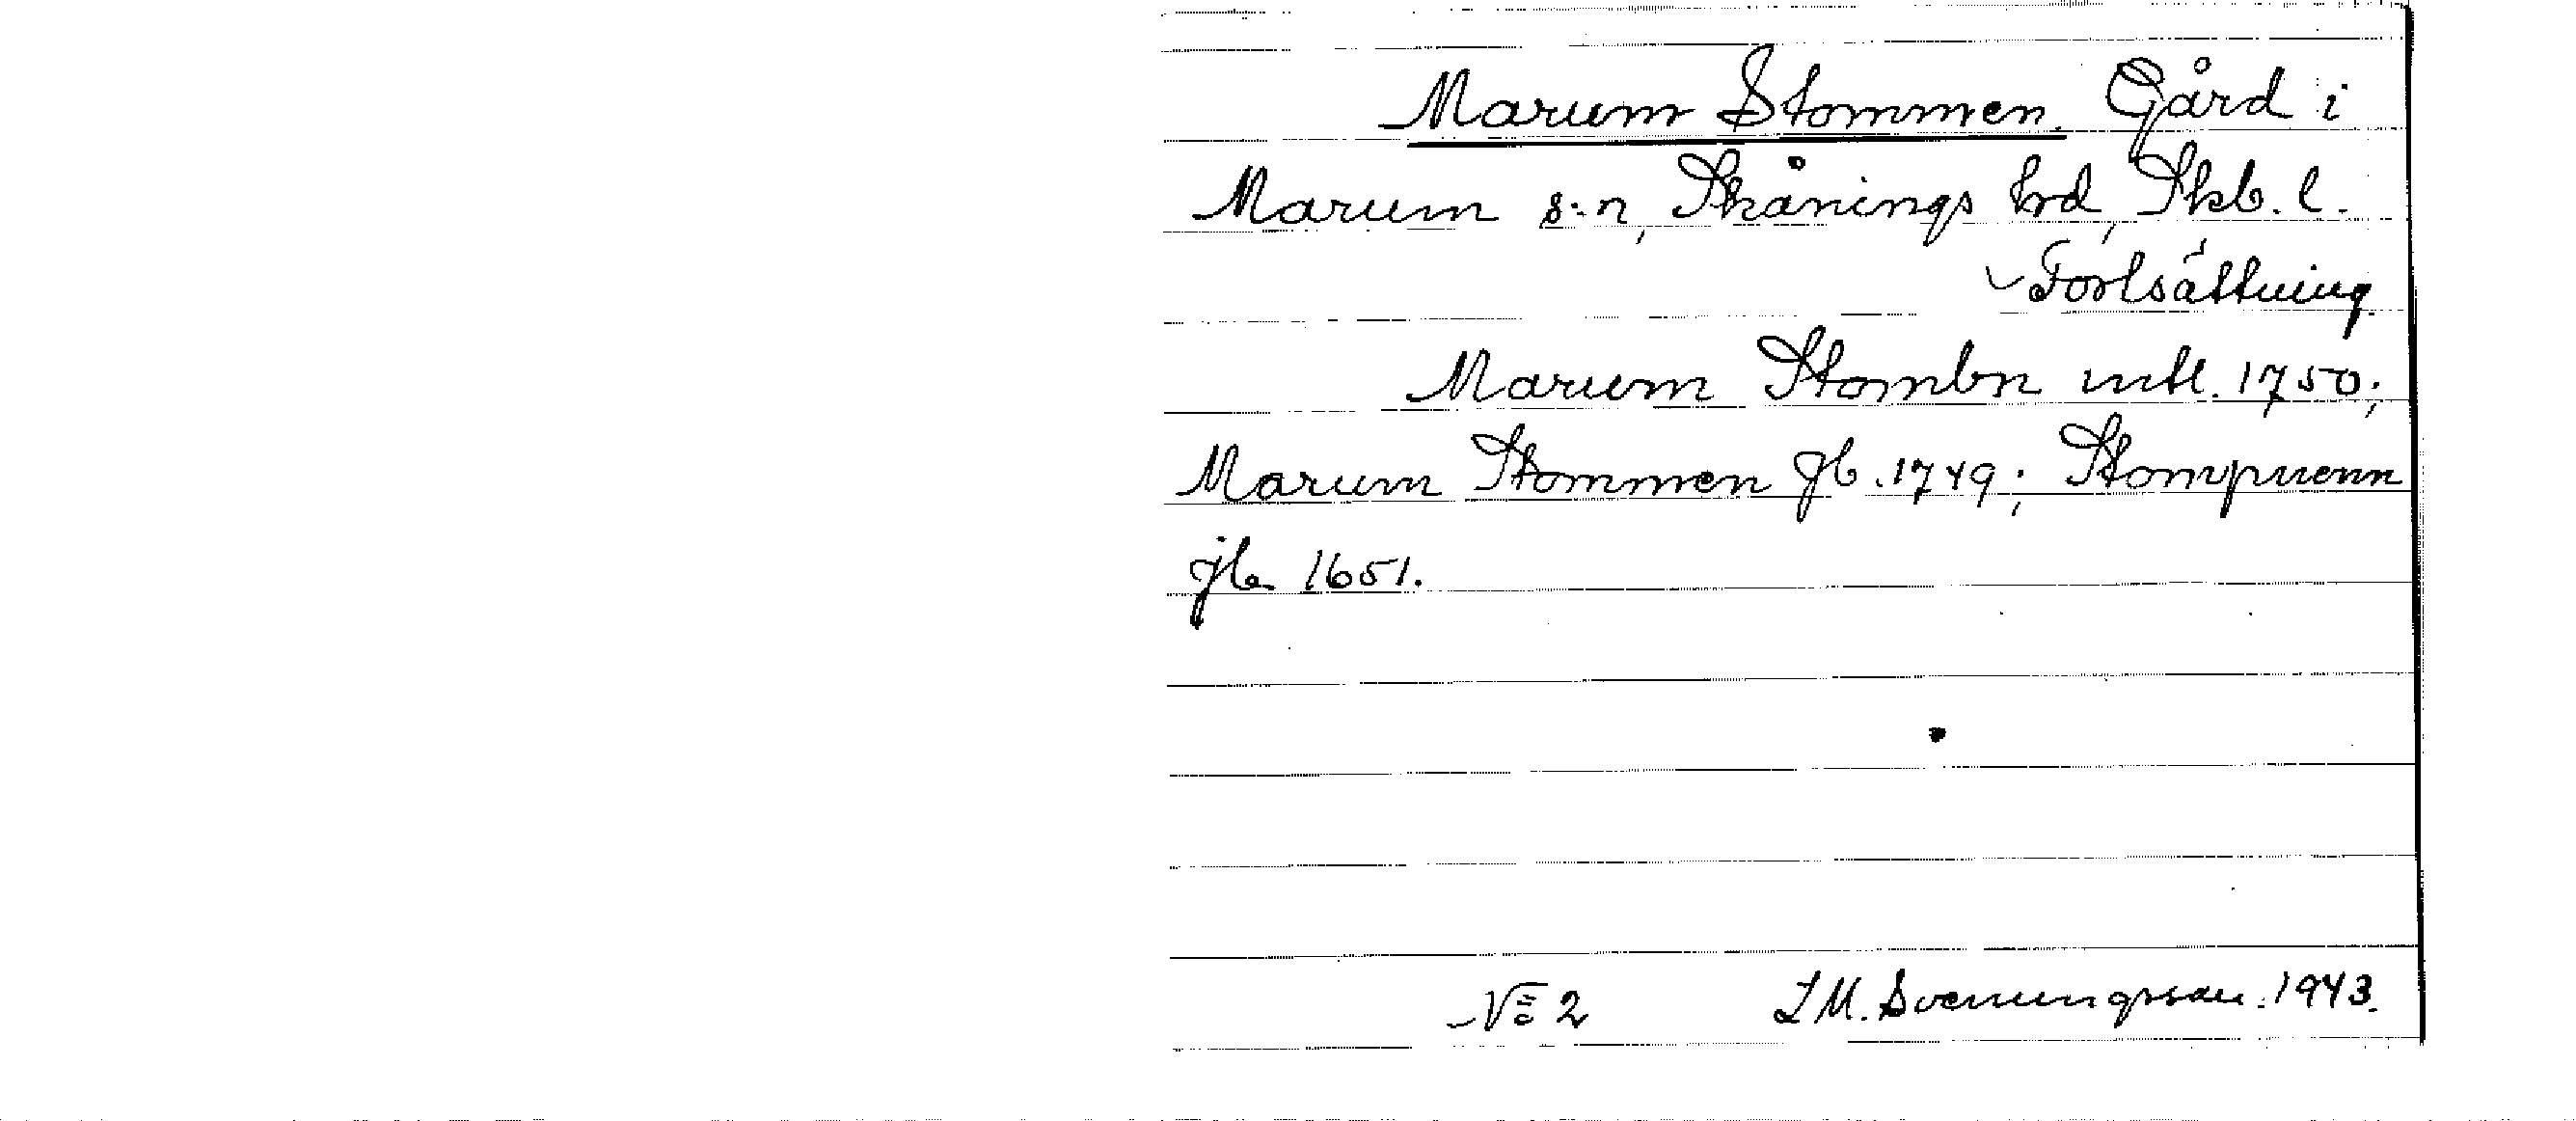 Marum Stommen. Gård i
Marum s:n, Skånings hrd, Skb. l.
Fortsättning.
Marum Stombn mtl. 1750;
Marum Stommen jb. 1749; Stompnenn
jb 1651.
2 I M. Svenungsson. 1943.